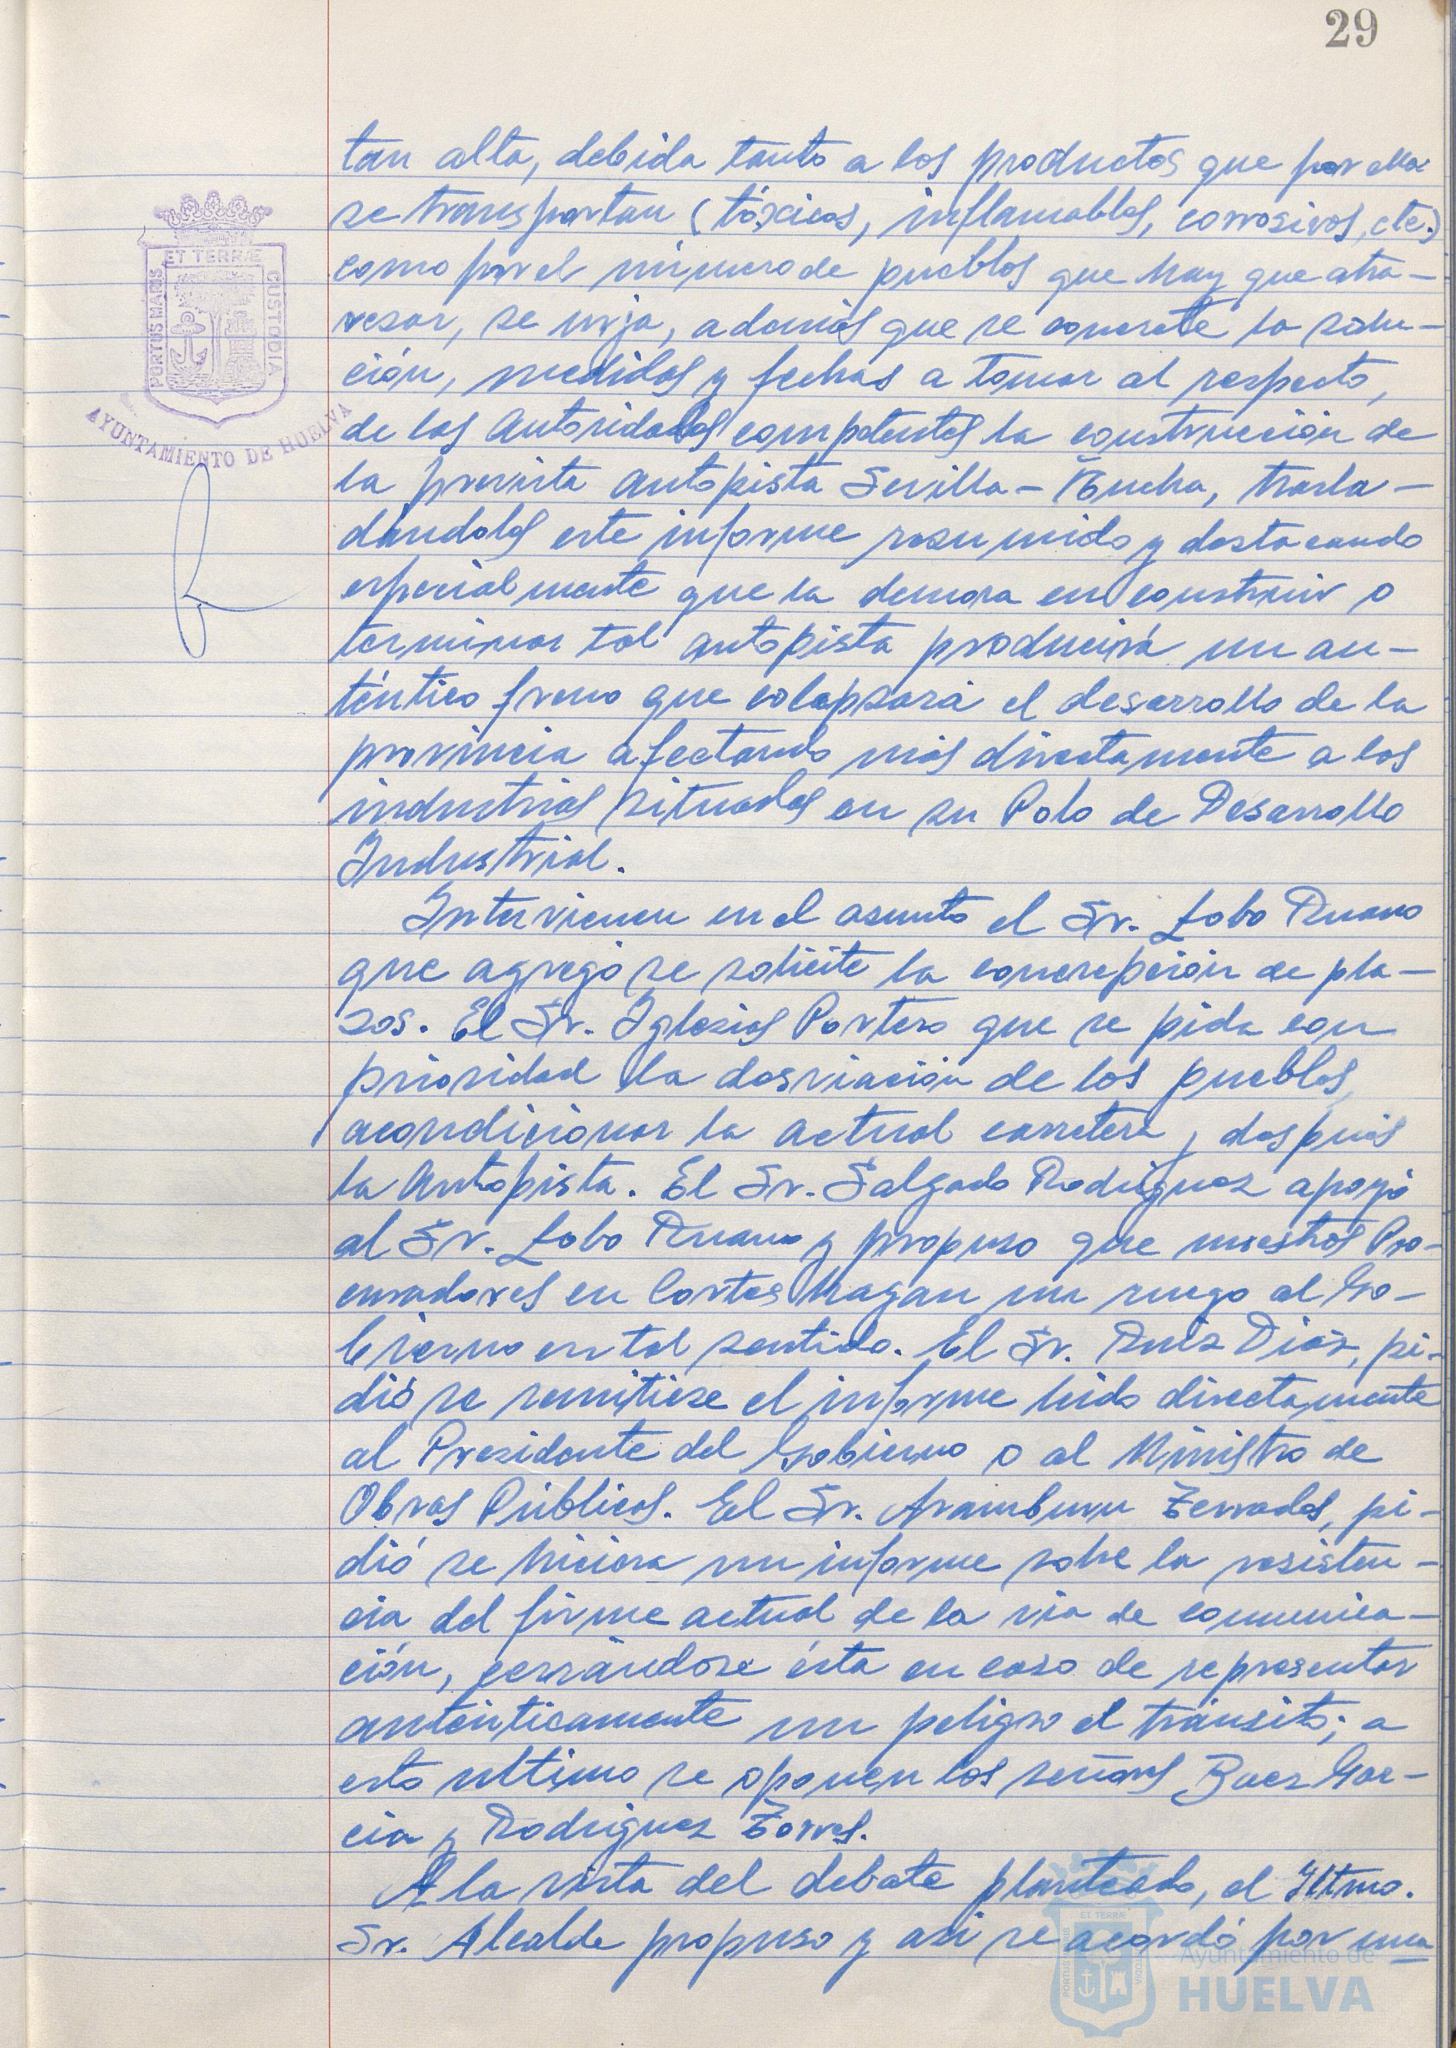 29
tan alta, debida tanto a los productos que por ella
se transportan (tóxicos, inflamables, corrosivos, etc.)
como por el número de pueblos que hay que atra-
vesar, se urja, además que se concrete la solu-
ción, medidas y fechas a tomar al respecto,
de las Autoridades competentes la construcción de
la prevista autopista Sevilla-Huelva, trasla-
dándoles este informe resumido y destacando
especialmente que la demora en construir o
terminar tal autopista producirá un au-
téntico freno que colapsará el desarrollo de la
provincia afectando más directamente a las
industrias situadas en su Polo de Desarrollo
Industrial.
Intervienen en el asunto el Sr. Lobo Ruano
que agregó se solicite la concepción de pla-
zos. El Sr. Iglesias Portero que se pida con
prioridad la desviación de los pueblos,
acondicionar la actual carretera, después
la Autopista. El Sr. Salgado Rodriguez apoyó
al Sr. Lobo Ruano y propuso que nuestros Pro-
curadores en Cortes hagan un ruego al Go-
bierno en tal sentido. El Sr. Ruiz Díaz, pi-
dió se remitiese el informe leido directamente
al Presidente del Gobierno o al Ministro de
Obras Públicas. El Sr. Aramburu Terrades, pi-
dió se hiciera un informe sobre la resisten-
cia del firme actual de la via de comunica-
ción, cerrándose ésta en caso de representar
auténticamente un peligro el tránsito; a
esto ultimo se oponen los señores Baez Gar-
cia y Rodriguez Torres.
A la vista del debate planteado, el Iltmo.
Sr. Alcalde propuso y asi se acordó por una
PORTUS MARIS
ET TERRÆ
CUSTODIA
AYUNTAMIENTO DE HUELVA
Ayuntamiento de
HUELVA